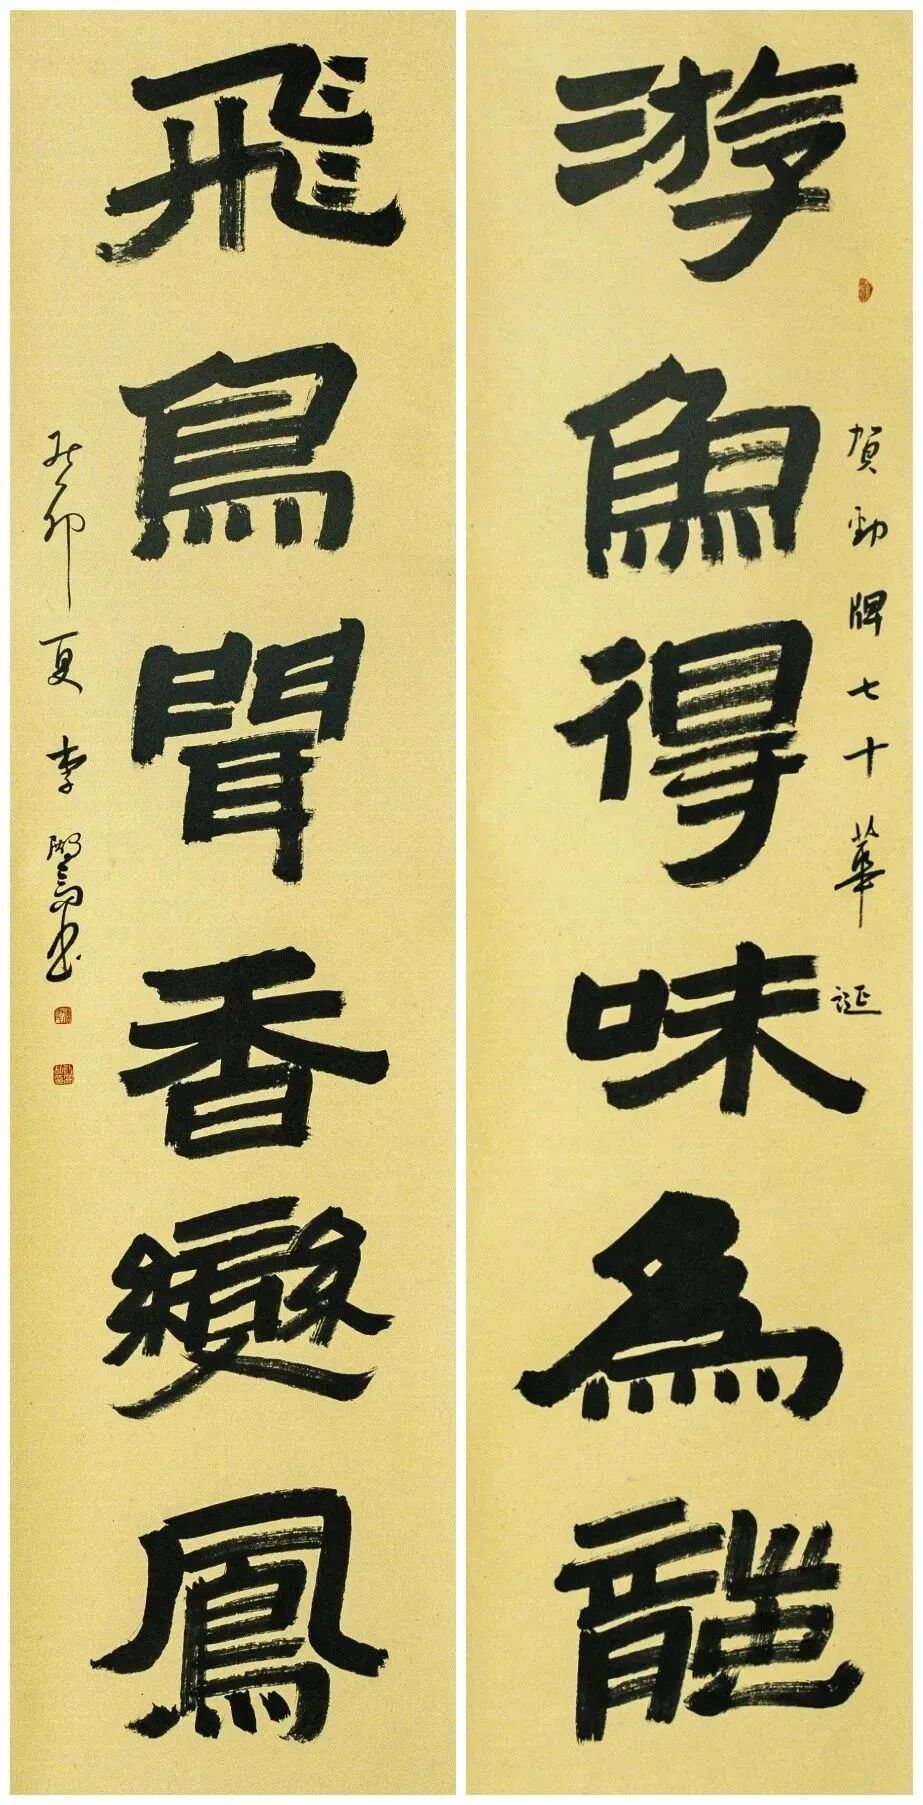 游魚得味為龍
賀勁牌七十華誕
飛鳥聞香變鳳
癸卯夏李
書